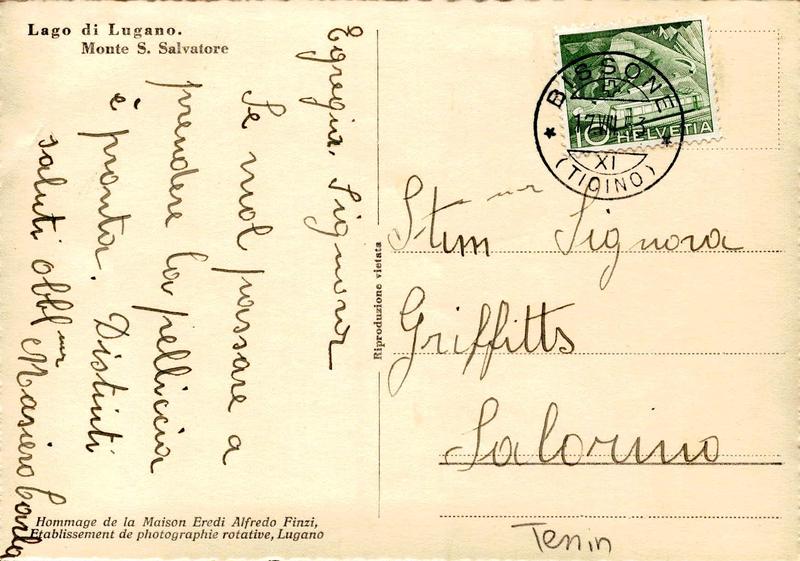 Lago di Lugano.
Monte S. Salvatore
Egregia. Signora
Se vuol passare a
prendere la pelliccia
è pronta. Distinti
saluti obbl.ma Masiero Carla
Riproduzione vietata
BISSONE
17.VIII.53
XI
(TICINO)
10 HELVETIA
Stim ma Signora
Griffitts
Salorino
Tessin
Hommage de la Maison Eredi Alfredo Finzi,
Etablissement de photographie rotative, Lugano